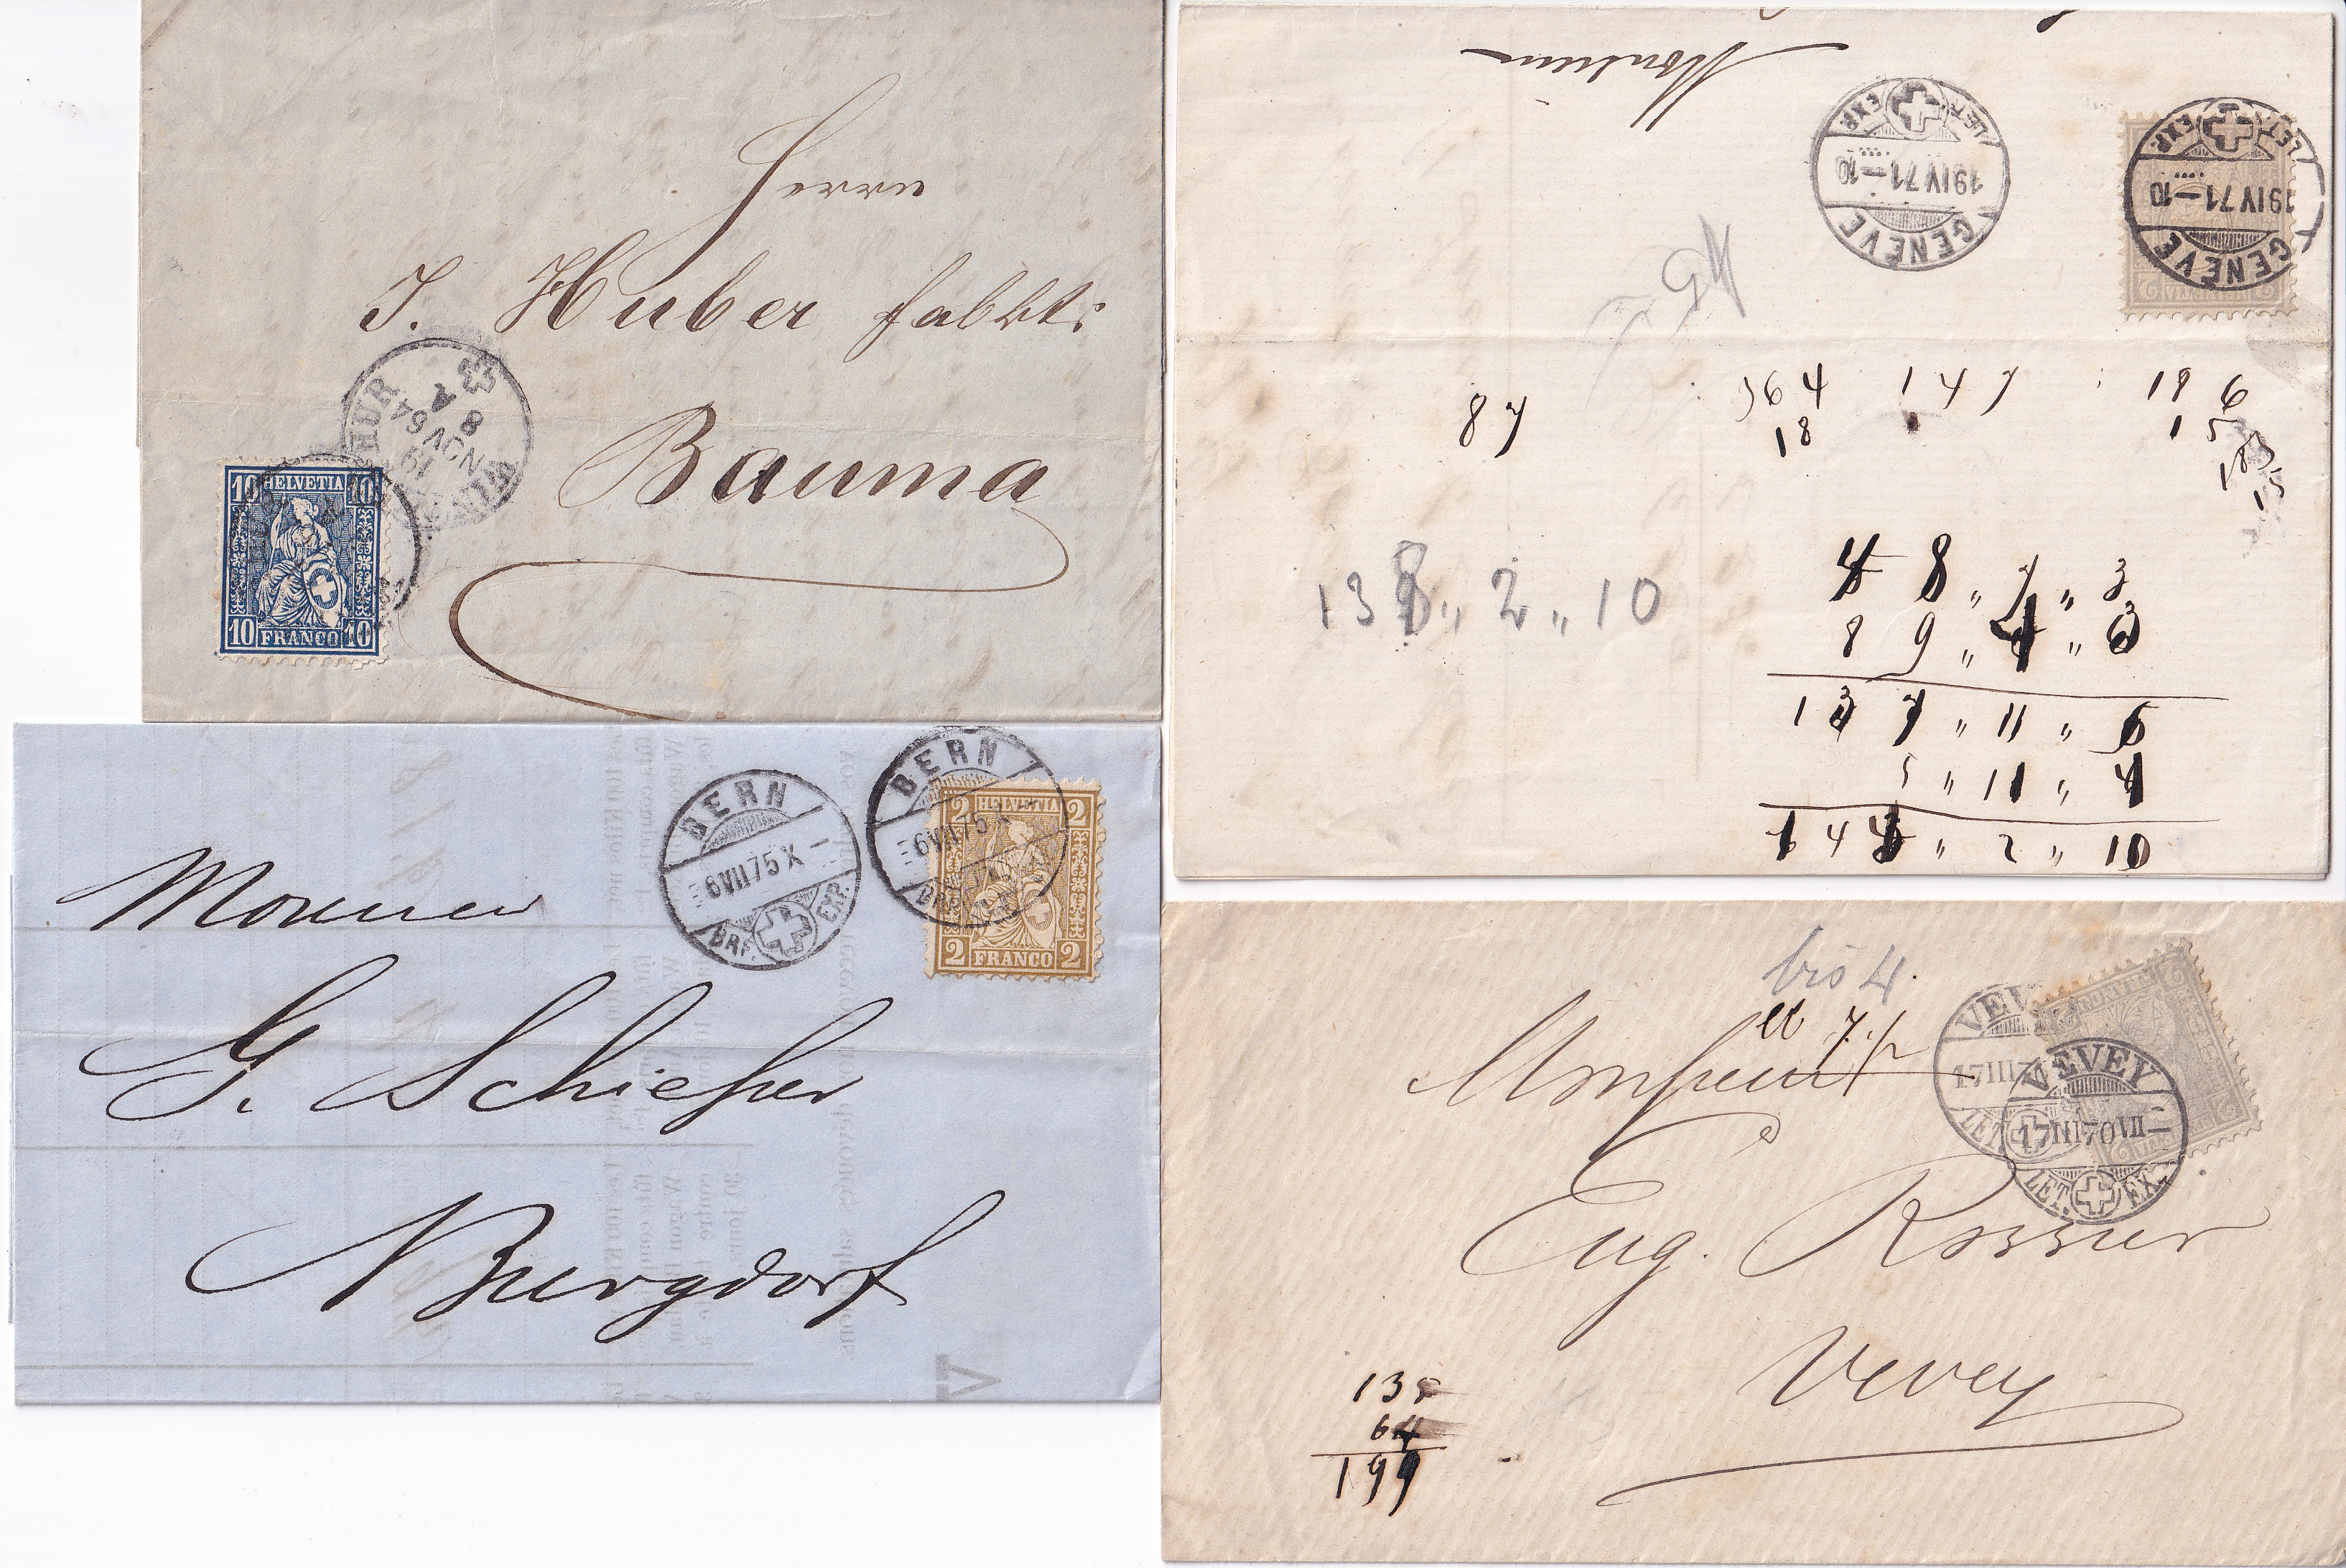 Herrn
J. Huber fabkt:
Bauma
WINTERTHUR
19
NOV 64
8 A
10 HELVETIA 10
10 FRANCO 10
Monsieur
GENÈVE
19 IV 71 — 10
LET. EXP.
GENÈVE
19 IV 71 — 10
LET. EXP.
87
564 147 186
18 1 5
185
15
48 „ 7 „ 3
89 „ 4 „ 3
137 „ 11 „ 6
5 „ 11 „ 4
143 „ 2 „ 10
138 „ 2 „ 10
BERN
6 VII 75 X —
BRF. EXP.
BERN
6 VII 75 X —
2 HELVETIA 2
2 FRANCO 2
Monsieur
G. Schieper
Burgdorf
bis 4.
et
Monsieur
Eug. Rossier
Vevey
VEVEY
17 III 7
LET.
VEVEY
17 III 70 VII —
LET. EX.
135
64
199